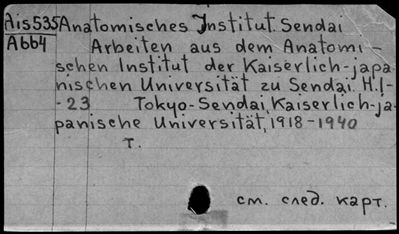 Ais535 Anatomisches Institut. Sendai
A664 Arbeiten aus dem Anatomi-
schen Institut der Kaiserlich-japa-
nischen Universität zu Sendai. H.1-
-23 Tokyo-Sendai, Kaiserlich-ja-
panische Universität, 1918-1940
т.
см. след. карт.